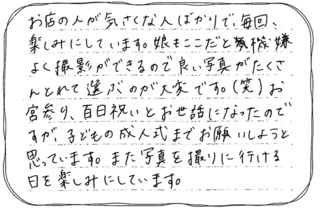 お店の人が気さくな人ばかりで、毎回、
楽しみにしています。娘もここだと機嫌
よく撮影ができるので良い写真がたくさ
んとれて選ぶのが大変です。(笑)お
宮参り、百日祝いとお世話になったので
すが、子どもの成人式までお願いしようと
思っています。また写真を撮りに行ける
日を楽しみにしています。